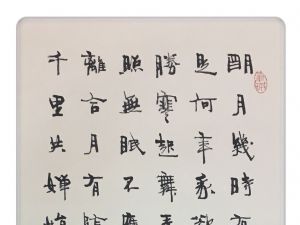 明月幾時有
是何年我欲
勝寒起舞弄
照無眠不應
離合月有陰
千里共嬋娟